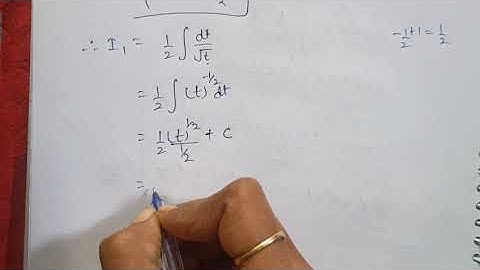 ∴ I₁ = 1/2 ∫ dt/√t
-1/2 + 1 = 1/2
= 1/2 ∫ (t)^-1/2 dt
= 1/2 (t)^1/2 / 1/2 + C
=